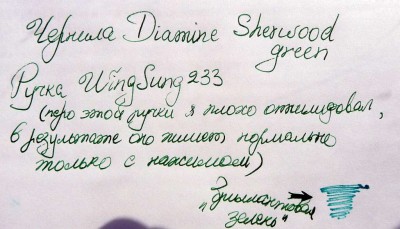 Чернила Diamine Sherwood
green
Ручка WingSung 233
(перо этой ручки я плохо отшлифовал,
в результате оно пишет нормально
только с нажимом)
"Бриллиантовая
зелень"